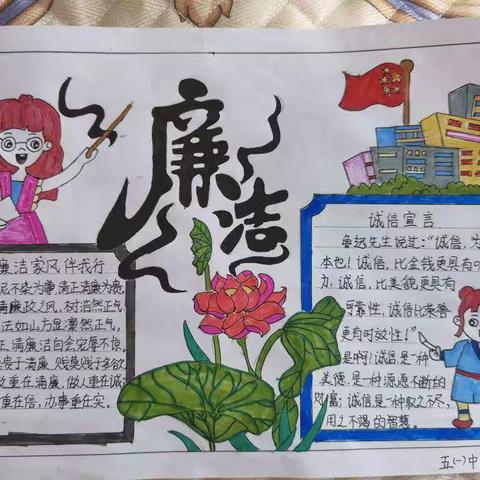 廉洁
廉洁家风伴我行
泥不染为事清正清廉为
清廉政之风，树浩然正气
法如山方显凛然正气，
正清廉洁自会宠辱不惊，
贵于清廉，贱莫贱于多欲
重在清廉，做人重在诚
重在信，办事重在实。
诚信宣言
鲁迅先生说过：“诚信，为
本也！诚信，比金钱更具有
力，诚信，比美貌更具有
可靠性，诚信比荣誉
更有时效性！”
是啊！诚信是一种
美德，是一种源源不断的
财富；诚信是一种取之不尽，
用之不竭的智慧。
五(一)中